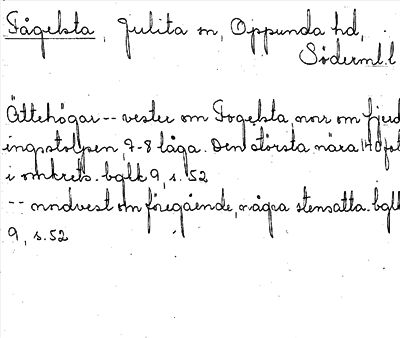 Fågelsta, Julita sn, Oppunda hd,
Söderml. l
Ättehögar -- vester om Fogelsta, norr om fjerd
ingsstolpen, 7-8 låga. Den största nära 140 fot
i omkrets. bglk 9, s. 52
-- nordvest om föregående, några stensatta. bglk
9, s. 52